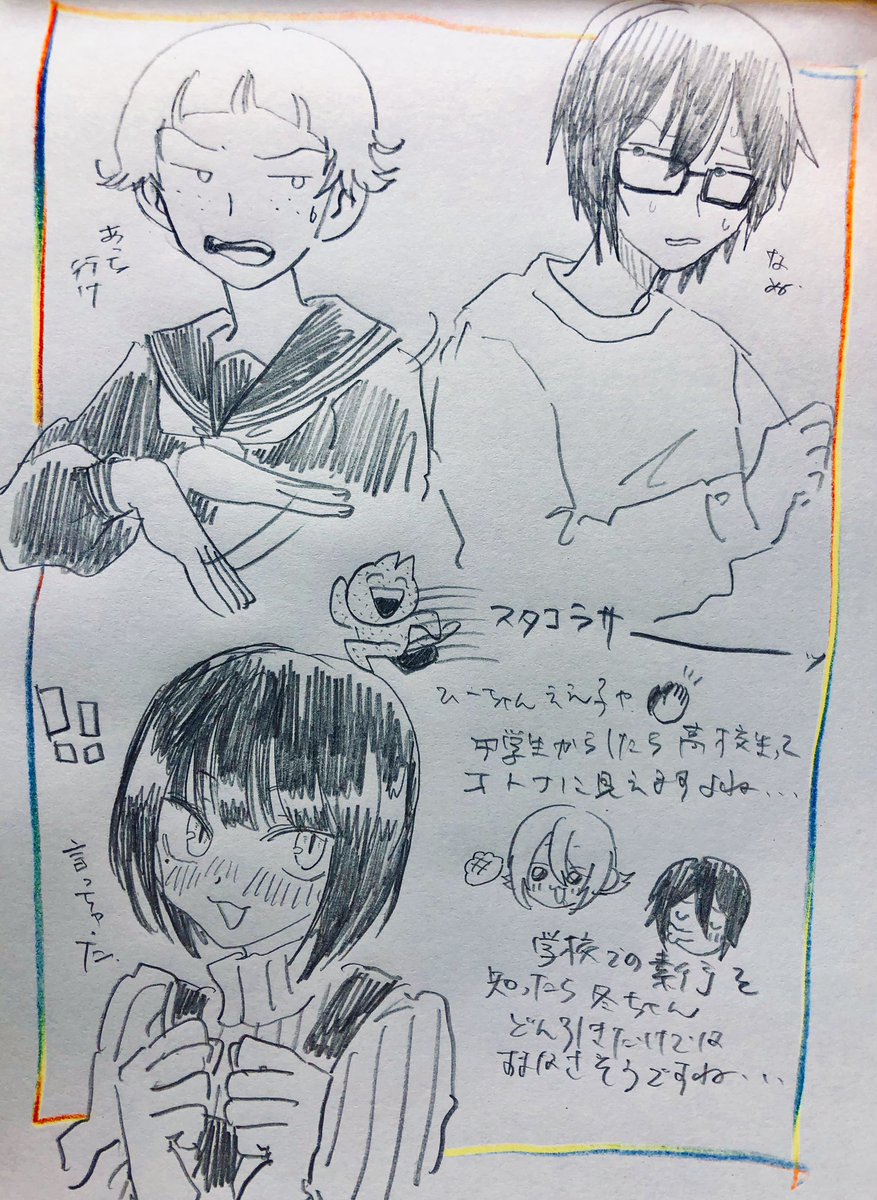 あっち
行け
なぬ
スタコラサ
ッ
ひーちゃんええ子や
中学生からしたら高校生って
オトナに見えますよね...
言っちゃった
学校での素行を
知ったら冬ちゃん
どん引きだけでは
すまなさそうですね...